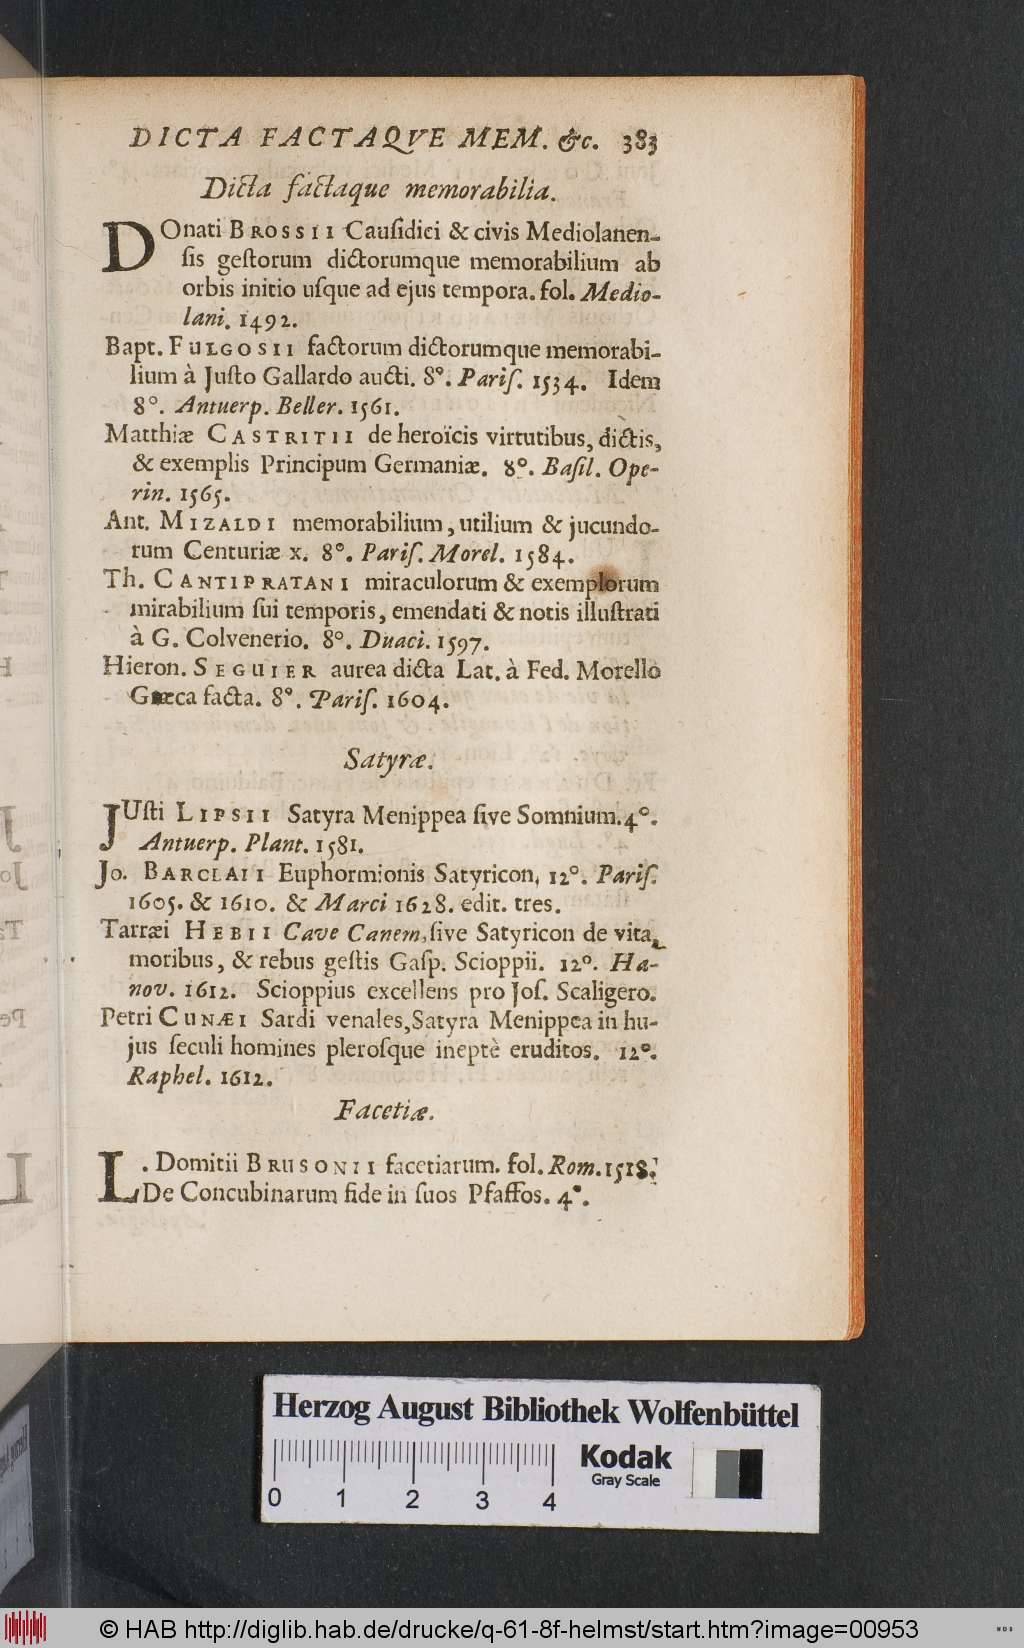 DICTA FACTAQVE MEM. &c. 383
Dicta factaque memorabilia.
DOnati BROSSII Cauſidici & civis Mediolanen-
ſis geſtorum dictorumque memorabilium ab
orbis initio uſque ad ejus tempora. fol. Medio-
lani. 1492.
Bapt. FULGOSII factorum dictorumque memorabi-
lium à Juſto Gallardo aucti. 8°. Pariſ. 1534. Idem
8°. Antuerp. Beller. 1561.
Matthiæ CASTRITII de heroïcis virtutibus, dictis,
& exemplis Principum Germaniæ. 8°. Baſil. Ope-
rin. 1565.
Ant. MIZALDI memorabilium, utilium & jucundo-
rum Centuriæ x. 8°. Pariſ. Morel. 1584.
Th. CANTIPRATANI miraculorum & exemplorum
mirabilium ſui temporis, emendati & notis illuſtrati
à G. Colvenerio. 8°. Duaci. 1597.
Hieron. SEGUIER aurea dicta Lat. à Fed. Morello
Græca facta. 8°. Pariſ. 1604.
Satyræ.
JUſti LIPSII Satyra Menippea ſive Somnium. 4°.
Antuerp. Plant. 1581.
Jo. BARCLAII Euphormionis Satyricon, 12°. Pariſ.
1605. & 1610. & Marci 1628. edit. tres.
Tarræi HEBII Cave Canem, ſive Satyricon de vita,
moribus, & rebus geſtis Gaſp. Scioppii. 12°. Ha-
nov. 1612. Scioppius excellens pro Joſ. Scaligero.
Petri CUNÆI Sardi venales, Satyra Menippea in hu-
jus ſeculi homines pleroſque ineptè eruditos. 12°.
Raphel. 1612.
Facetiæ.
L. Domitii BRUSONII facetiarum. fol. Rom. 1518.
De Concubinarum fide in ſuos Pfaffos. 4°.
Herzog August Bibliothek Wolfenbüttel
Kodak
Gray Scale
0 1 2 3 4
© HAB http://diglib.hab.de/drucke/q-61-8f-helmst/start.htm?image=00953